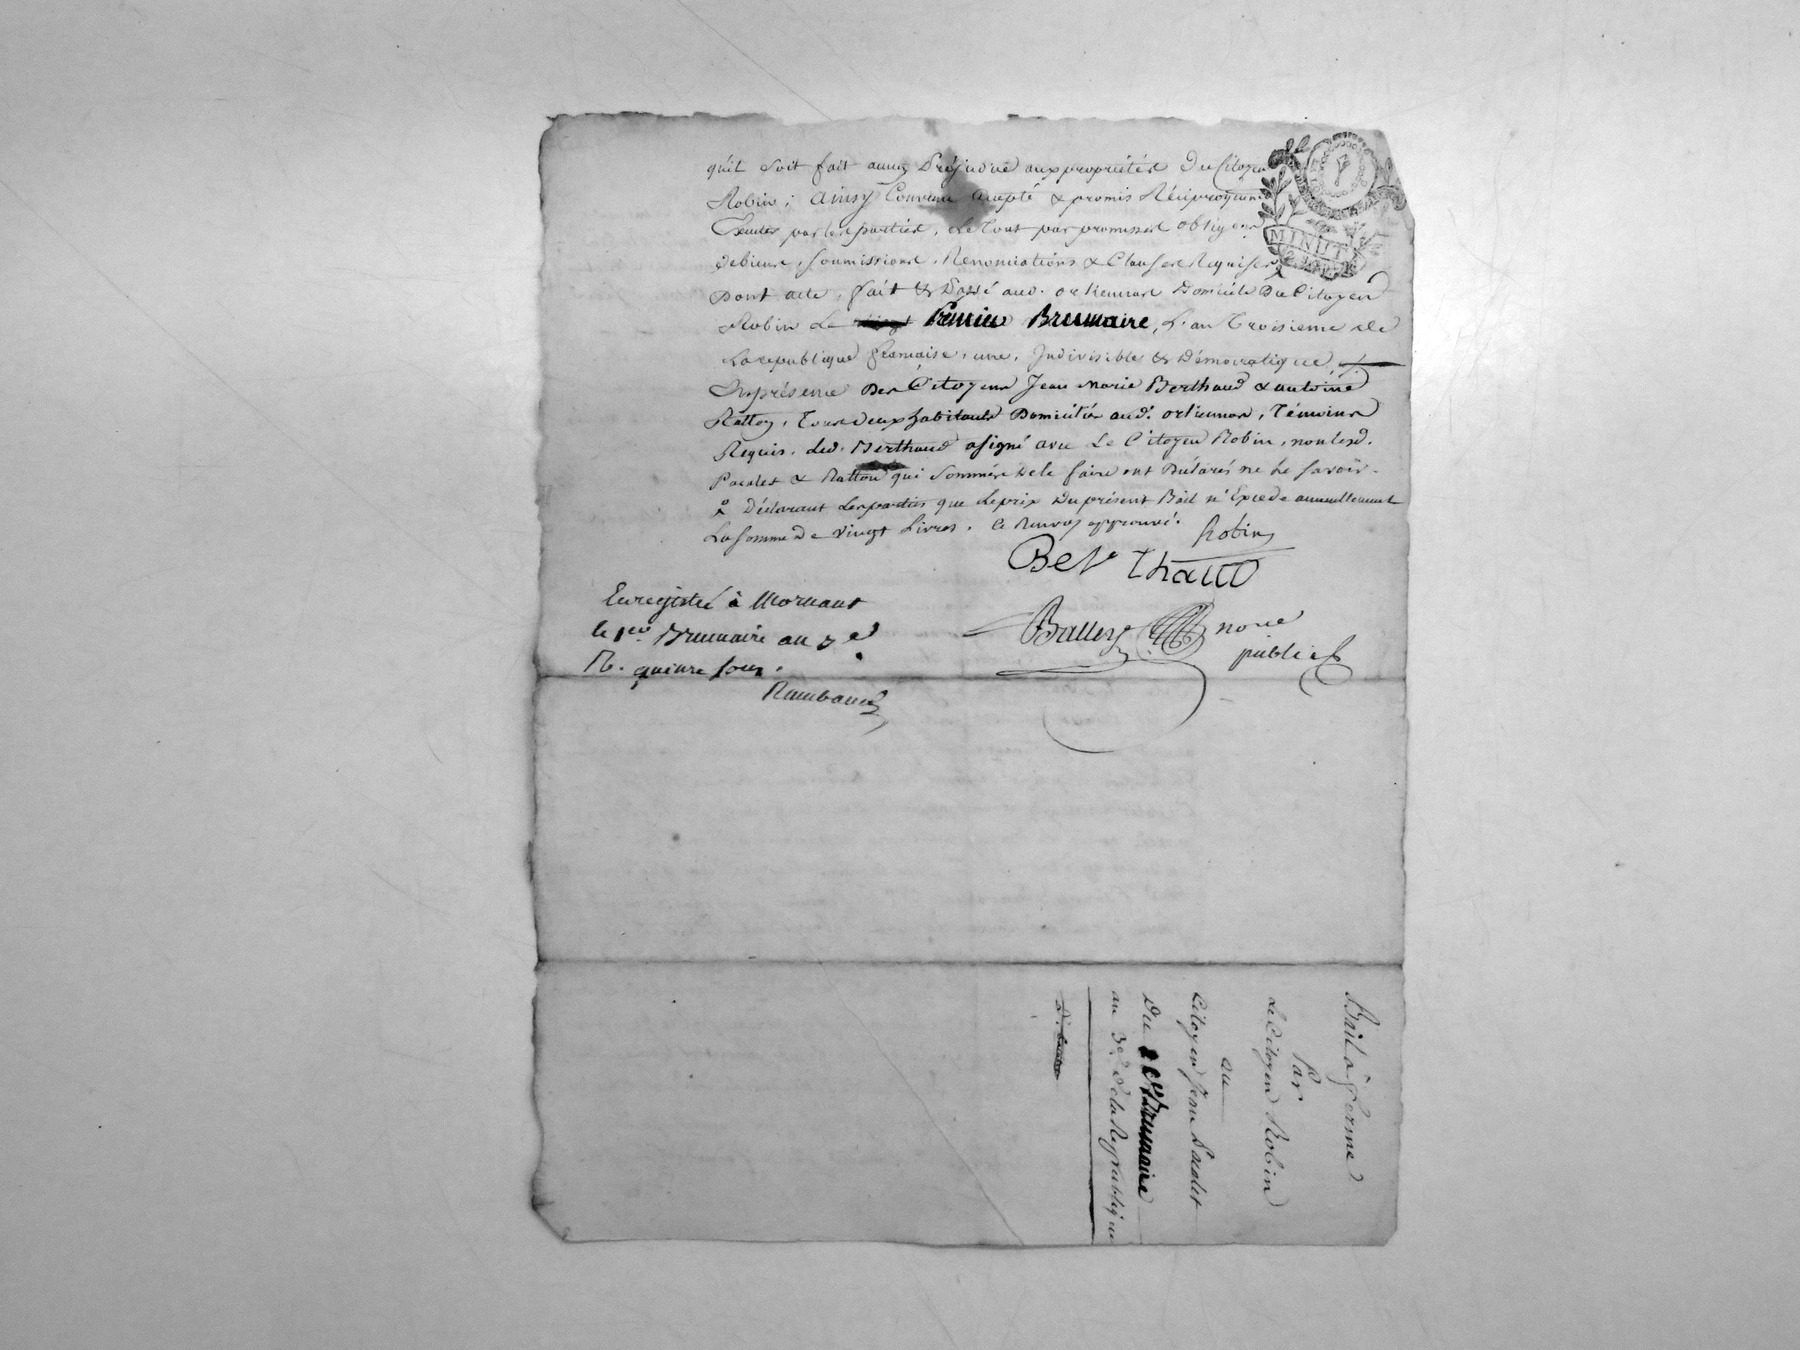 qu'il soit fait aucun Préjudice aux propriétés Du Citoyen
Robin; ainsy Convenu accepté & promis Réciproquem
Exécuter par les parties, Le Tout par promesses obligons
de biens, soumissions, Renonciations & Clauses Requises
Dont acte, fait & Passé aud. orlienas Domicile Du Citoyen
Robin Le Premier Brumaire, L'an Troisieme de
La republique francaise, une, Indivisible & Démocratique,
En présence Des Citoyens Jean Marie Berthaud & antoine
Ratton, Tous deux habitants Domiciliés aud. orlienas, Témoins
Requis. Led. Berthaud a signé avec Le Citoyen Robin, non lesd.
Pacalet & Ratton qui Sommés De le faire ont Déclarés ne Le Savoir.
Déclarant Les parties que Le prix Du présent Bail n'Excede annuellement
La Somme De vingt Livres. Ce Renvoy approuvé.
Robin
Berthaud
Enregistré à Mornant
le 1er Brumaire an 3e
R. quinze sous.
notre
public
MINUTE
Bail à ferme
Par
Le Citoyen Robin
au
Citoyen Jean Pacalet
Du 1er Brumaire
an 3e De la Republique